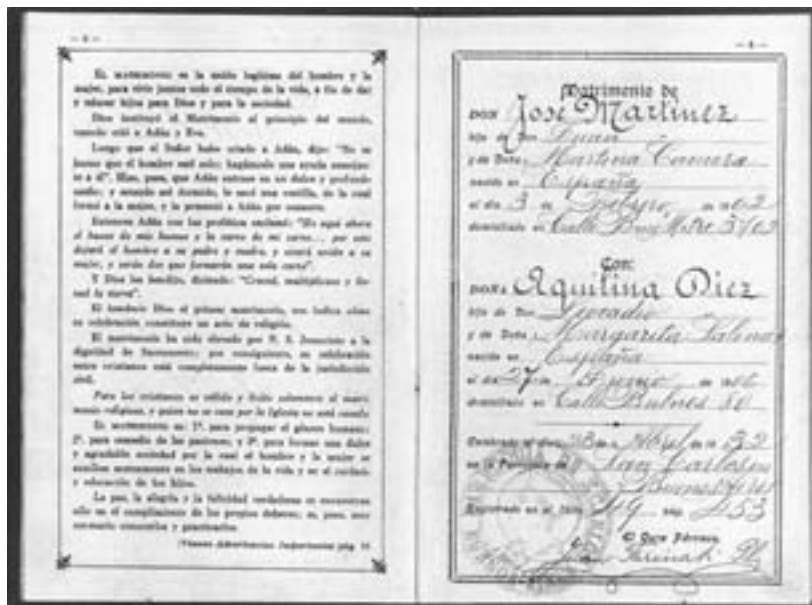 EL MATRIMONIO es la unión legítima del hombre y la
mujer, para vivir juntos todo el tiempo de la vida, a fin de dar
y educar hijos para Dios y para la sociedad.
Dios instituyó el Matrimonio al principio del mundo,
cuando crió a Adán y Eva.
Luego que el Señor hubo criado a Adán, dijo: "No es
bueno que el hombre esté solo: hagámosle una ayuda semejan-
te a él". Hizo, pues, que Adán entrase en un dulce y profundo
sueño; y estando así dormido, le sacó una costilla, de la cual
formó a la mujer, y la presentó a Adán por consorte.
Entonces Adán con luz profética exclamó: "He aquí ahora
el hueso de mis huesos y la carne de mi carne... por esto
dejará el hombre a su padre y madre, y estará unido a su
mujer, y serán dos que formarán una sola carne".
Y Dios los bendijo, diciendo: "Creced, multiplicaos y lle-
nad la tierra".
El bendecir Dios el primer matrimonio, nos indica cómo
su celebración constituye un acto de religión.
El matrimonio ha sido elevado por N. S. Jesucristo a la
dignidad de Sacramento; por consiguiente, su celebración
entre cristianos está completamente fuera de la jurisdicción
civil.
Para los cristianos es válido y lícito solamente el matri-
monio religioso, y quien no se casa por la Iglesia no está casado.
EL MATRIMONIO es: 1º. para propagar el género humano;
2º. para remedio de las pasiones; y 3º. para formar una dulce
y agradable sociedad por la cual el hombre y la mujer se
auxilien mutuamente en los trabajos de la vida y en el cuidado
y educación de los hijos.
La paz, la alegría y la felicidad verdaderas se encuentran
sólo en el cumplimiento de los propios deberes; es, pues, muy
necesario conocerlos y practicarlos.
(Véanse Advertencias Importantes pág.
Matrimonio de
DON José Martinez
hijo de Don Juan
y de Doña Martina
nacido en España
el día 3 de de
domiciliado en Calle
Con:
DOÑA Aquilina Diez
hija de Don
y de Doña Margarita
nacida en España
el día 27 de Junio de
domiciliada en Calle Bulnes 50
Celebrado el día 23 de Abril de 19 32
en la Parroquia de San Carlos
Buenos Aires
Registrado en el libro 49 pág. 453
El Cura Párroco